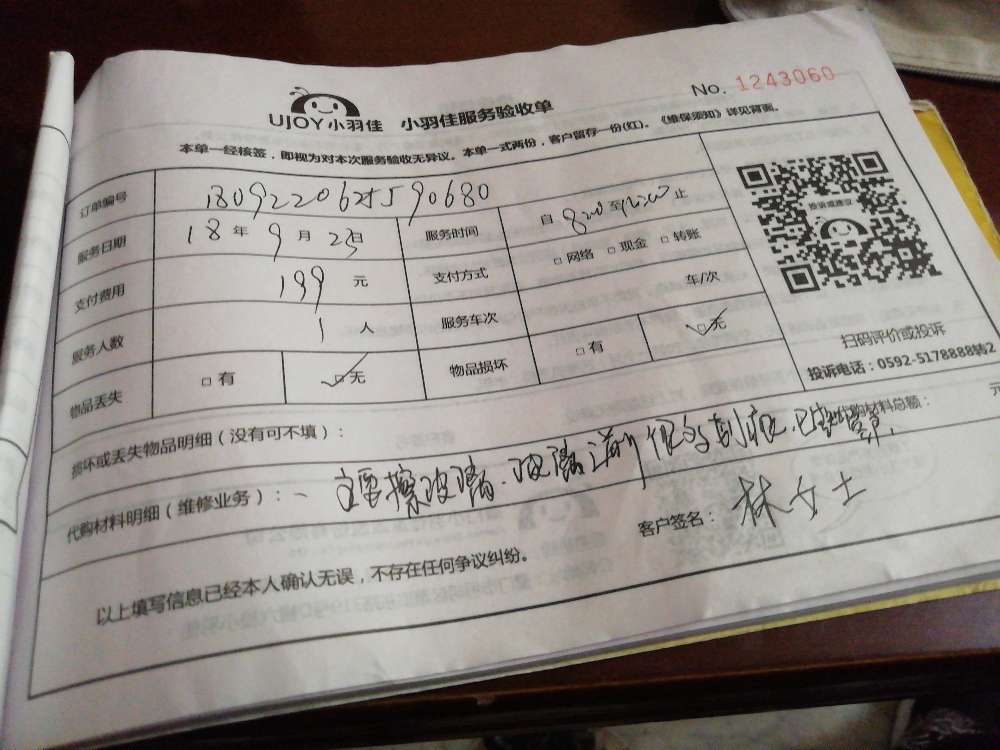 No. 1243060
UJOY小羽佳 小羽佳服务验收单
本单一经核签，即视为对本次服务验收无异议。本单一式两份，客户留存一份(红)。《维保须知》详见背面。
订单编号
服务日期 18 年 9 月 23 日 服务时间 自 8:00 至 12:00 止
支付费用 199 元 支付方式 □ 网络 □ 现金 □ 转账
服务人数 1 人 服务车次 车/次
物品丢失 □ 有 □ 无 物品损坏 □ 有 □ 无
投诉或建议
扫码评价或投诉
投诉电话：0592-5178888转2
损坏或丢失物品明细（没有可不填）：
代购材料总额： 元
代购材料明细（维修业务）： 主要擦玻璃、玻璃 很多划痕
客户签名： 林女士
以上填写信息已经本人确认无误，不存在任何争议纠纷。